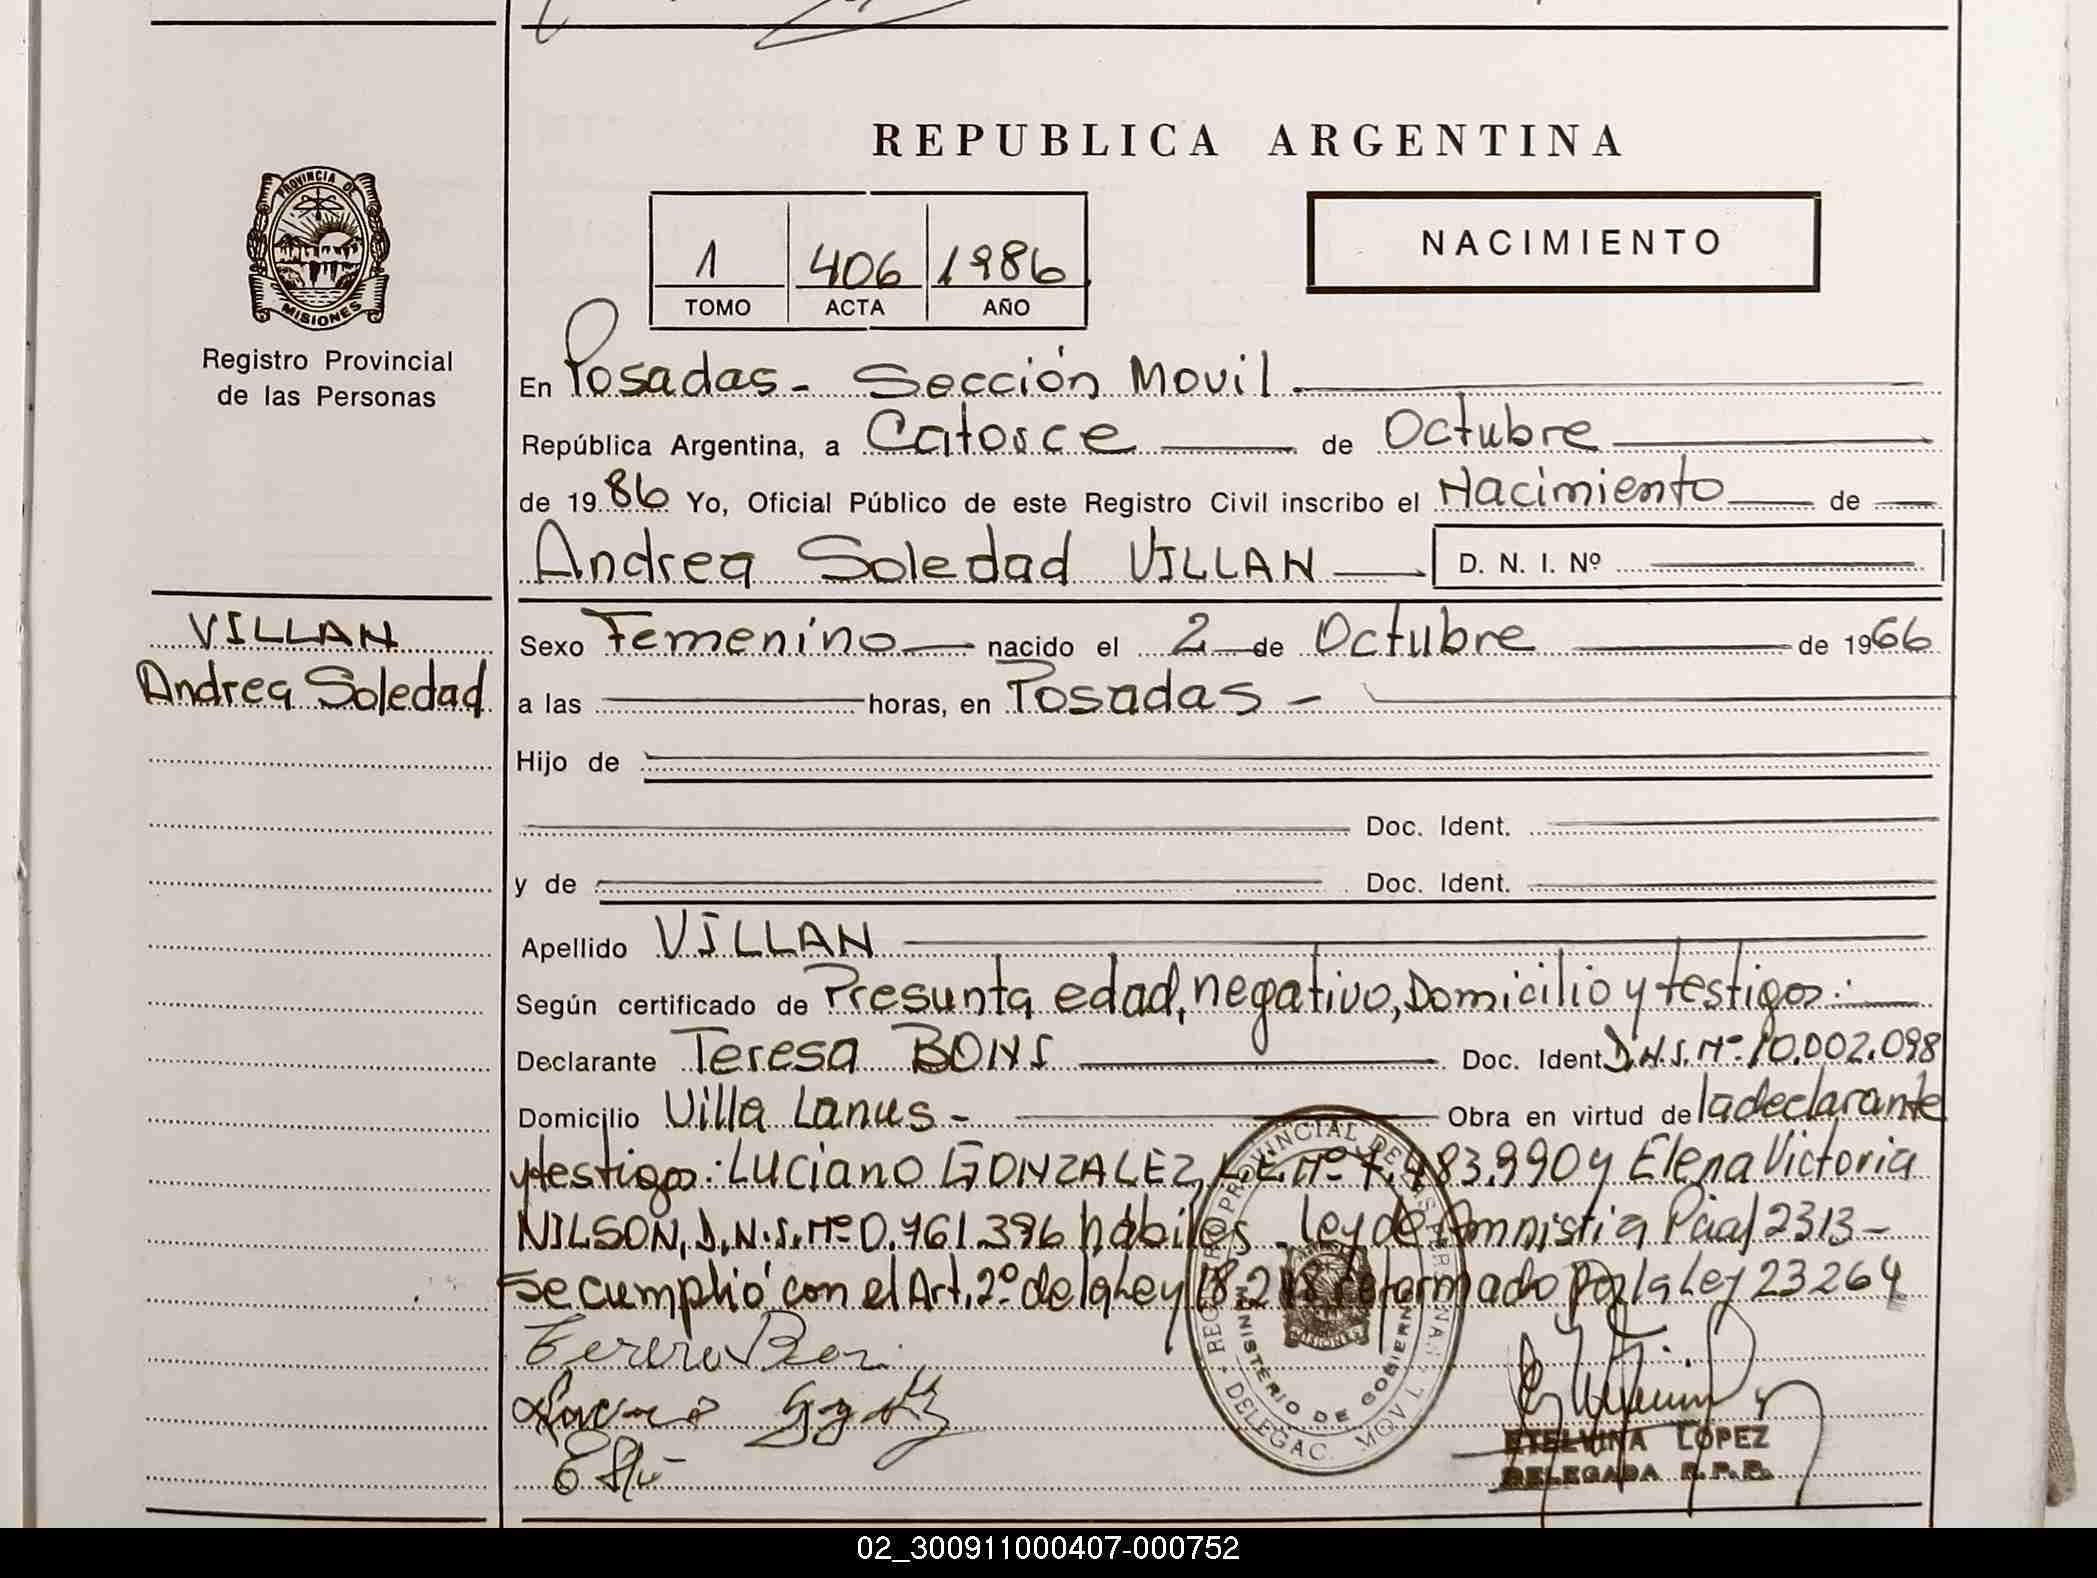 REPUBLICA ARGENTINA
PROVINCIA DE
MISIONES
Registro Provincial
de las Personas
1 406 1986
TOMO ACTA AÑO
NACIMIENTO
En Posadas - Sección Movil
República Argentina, a Catorce de Octubre
de 1986 Yo, Oficial Público de este Registro Civil inscribo el Nacimiento de
Andrea Soledad VILLAN D. N. I. Nº
VILLAN
Andrea Soledad
Sexo Femenino nacido el 2 de Octubre de 1966
a las horas, en Posadas -
Hijo de
Doc. Ident.
y de Doc. Ident.
Apellido VILLAN
Según certificado de Presunta edad, negativo, Domicilio y testigos:
Declarante Teresa BONI Doc. Ident. D.N.I. Nº 10.002.098
Domicilio Villa Lanus - Obra en virtud de la declarante
y testigos: Luciano GONZALEZ, L.E. Nº 7.483.990 y Elena Victoria
NILSON, D.N.I. Nº 0.761.396 hábiles - ley de Amnistia Pcial 2313 -
Se cumplió con el Art. 2º de la Ley 18.248 reformado por la Ley 23264
REGISTRO PROVINCIAL DE LAS PERSONAS
MINISTERIO DE GOBIERNO
DELEGAC. MOVIL
ETELVINA LOPEZ
DELEGADA R.P.P.
02_300911000407-000752